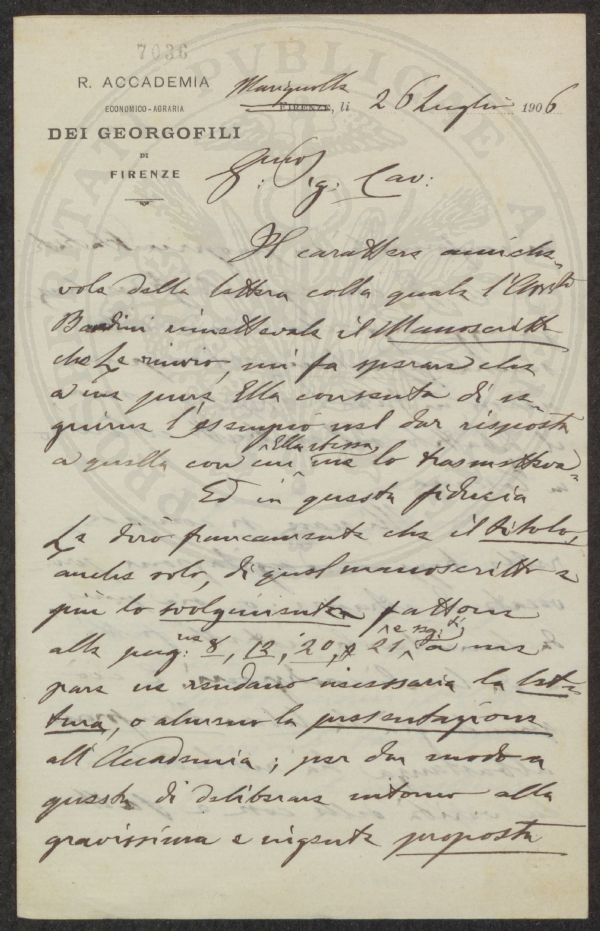 7036
R. ACCADEMIA
ECONOMICO-AGRARIA
DEI GEORGOFILI
DI
FIRENZE
Marignolle
FIRENZE, li 26 Luglio 1906
Sig. Cav:
Il carattere amiche=
vole della lettera colla quale l'
Bandini rimettevale il Manoscritto
che Le rinvio, mi fa sperare che
a me pure Ella consenta di se=
guirne l'esempio nel dar risposta
a quella con cui Ella stessa me lo trasmetteva=
Ed in questa fiducia
Le dirò francamente che il titolo,
anche solo, di quel manoscritto e
più lo svolgimento fattone
alle pag:ne 8, 12, 20, e 21 e seg.ti, a me
pare ne rendano necessaria la let=
tura, o almeno la presentazione
all'Accademia; per dar modo a
questa di deliberare intorno alla
gravissima e ingente proposta